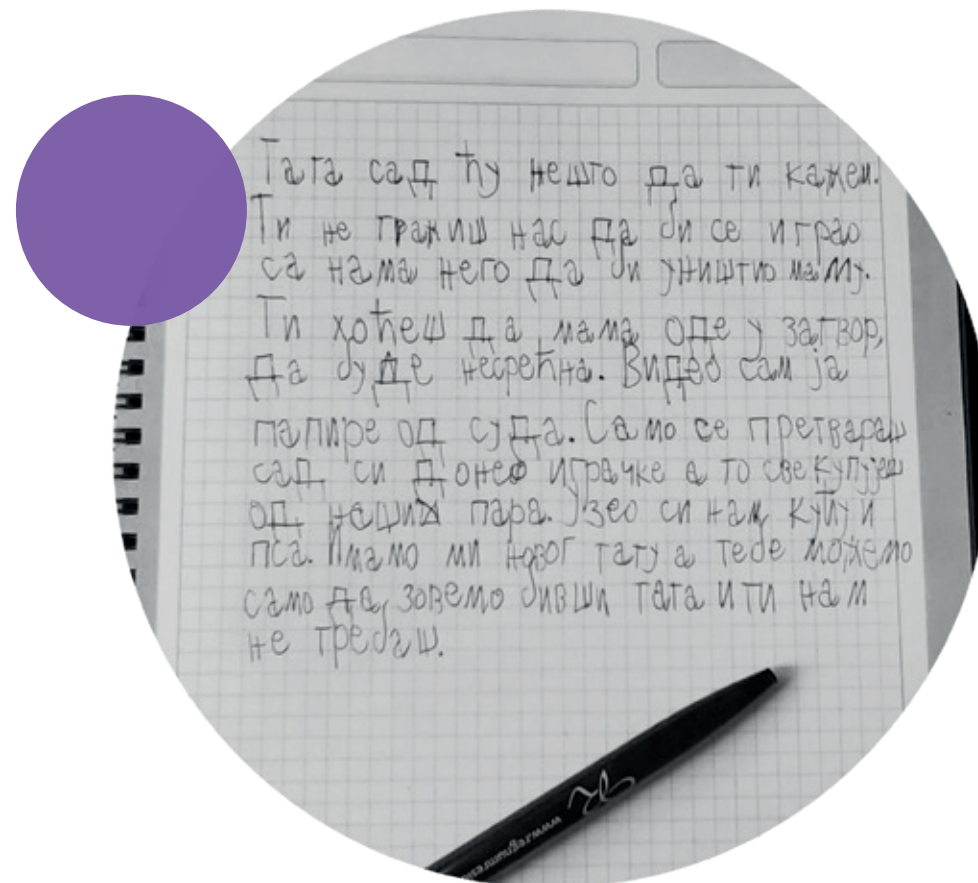 Тата сад ћу нешто да ти кажем.
Ти не тражиш нас да би се играо
са нама него да би уништио маму.
Ти хоћеш да мама оде у затвор,
да буде несрећна. Видео сам ја
папире од суда. Само се претвараш
сад си донео играчке а то све купујеш
од наших пара. Узео си нам кућу и
пса. Имамо ми новог тату а тебе можемо
само да зовемо бивши тата и ти нам
не требаш.